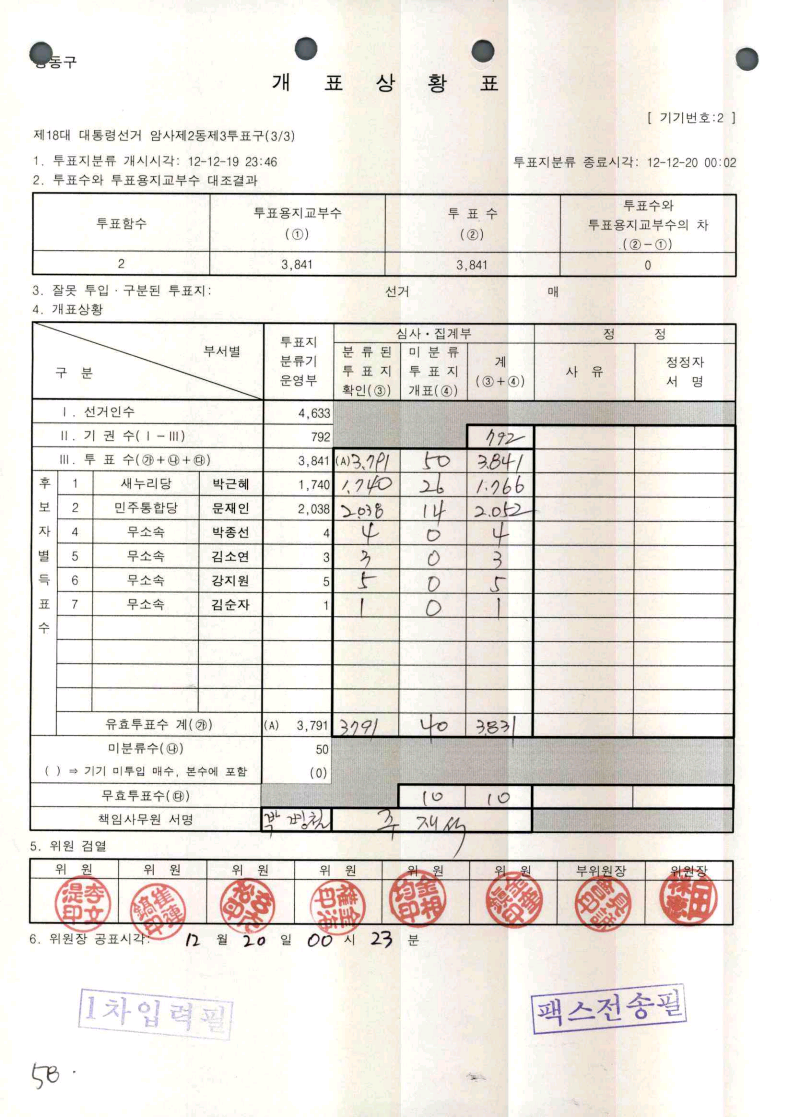 강동구
개 표 상 황 표
[ 기기번호:2 ]
제18대 대통령선거 암사제2동제3투표구(3/3)
1. 투표지분류 개시시각: 12-12-19 23:46 투표지분류 종료시각: 12-12-20 00:02
2. 투표수와 투표용지교부수 대조결과
투표함수 투표용지교부수 (①) 투 표 수 (②) 투표수와 투표용지교부수의 차 (②-①)
2 3,841 3,841 0
3. 잘못 투입 · 구분된 투표지: 선거 매
4. 개표상황
구 분 부서별 투표지 분류기 운영부 심사 · 집계부 정 정
분 류 된 투 표 지 확인(③) 미 분 류 투 표 지 개표(④) 계 (③+④) 사 유 정정자 서 명
Ⅰ. 선거인수 4,633
Ⅱ. 기 권 수(Ⅰ-Ⅲ) 792 792
Ⅲ. 투 표 수(㉮+㉯+㉰) 3,841 (A)3.791 50 3.841
후보자별득표수
1 새누리당 박근혜 1,740 1.740 26 1.766
2 민주통합당 문재인 2,038 2.038 14 2.052
4 무소속 박종선 4 4 0 4
5 무소속 김소연 3 3 0 3
6 무소속 강지원 5 5 0 5
7 무소속 김순자 1 1 0 1
유효투표수 계(㉮) (A) 3,791 3791 40 3.831
미분류수(㉯) 50
( ) ⇒ 기기 미투입 매수, 본수에 포함 (0)
무효투표수(㉰) 10 10
책임사무원 서명
5. 위원 검열
위 원 위 원 위 원 위 원 위 원 위 원 부위원장 위원장
6. 위원장 공표시각: 12 월 20 일 00 시 23 분
1차입력필
팩스전송필
58 .